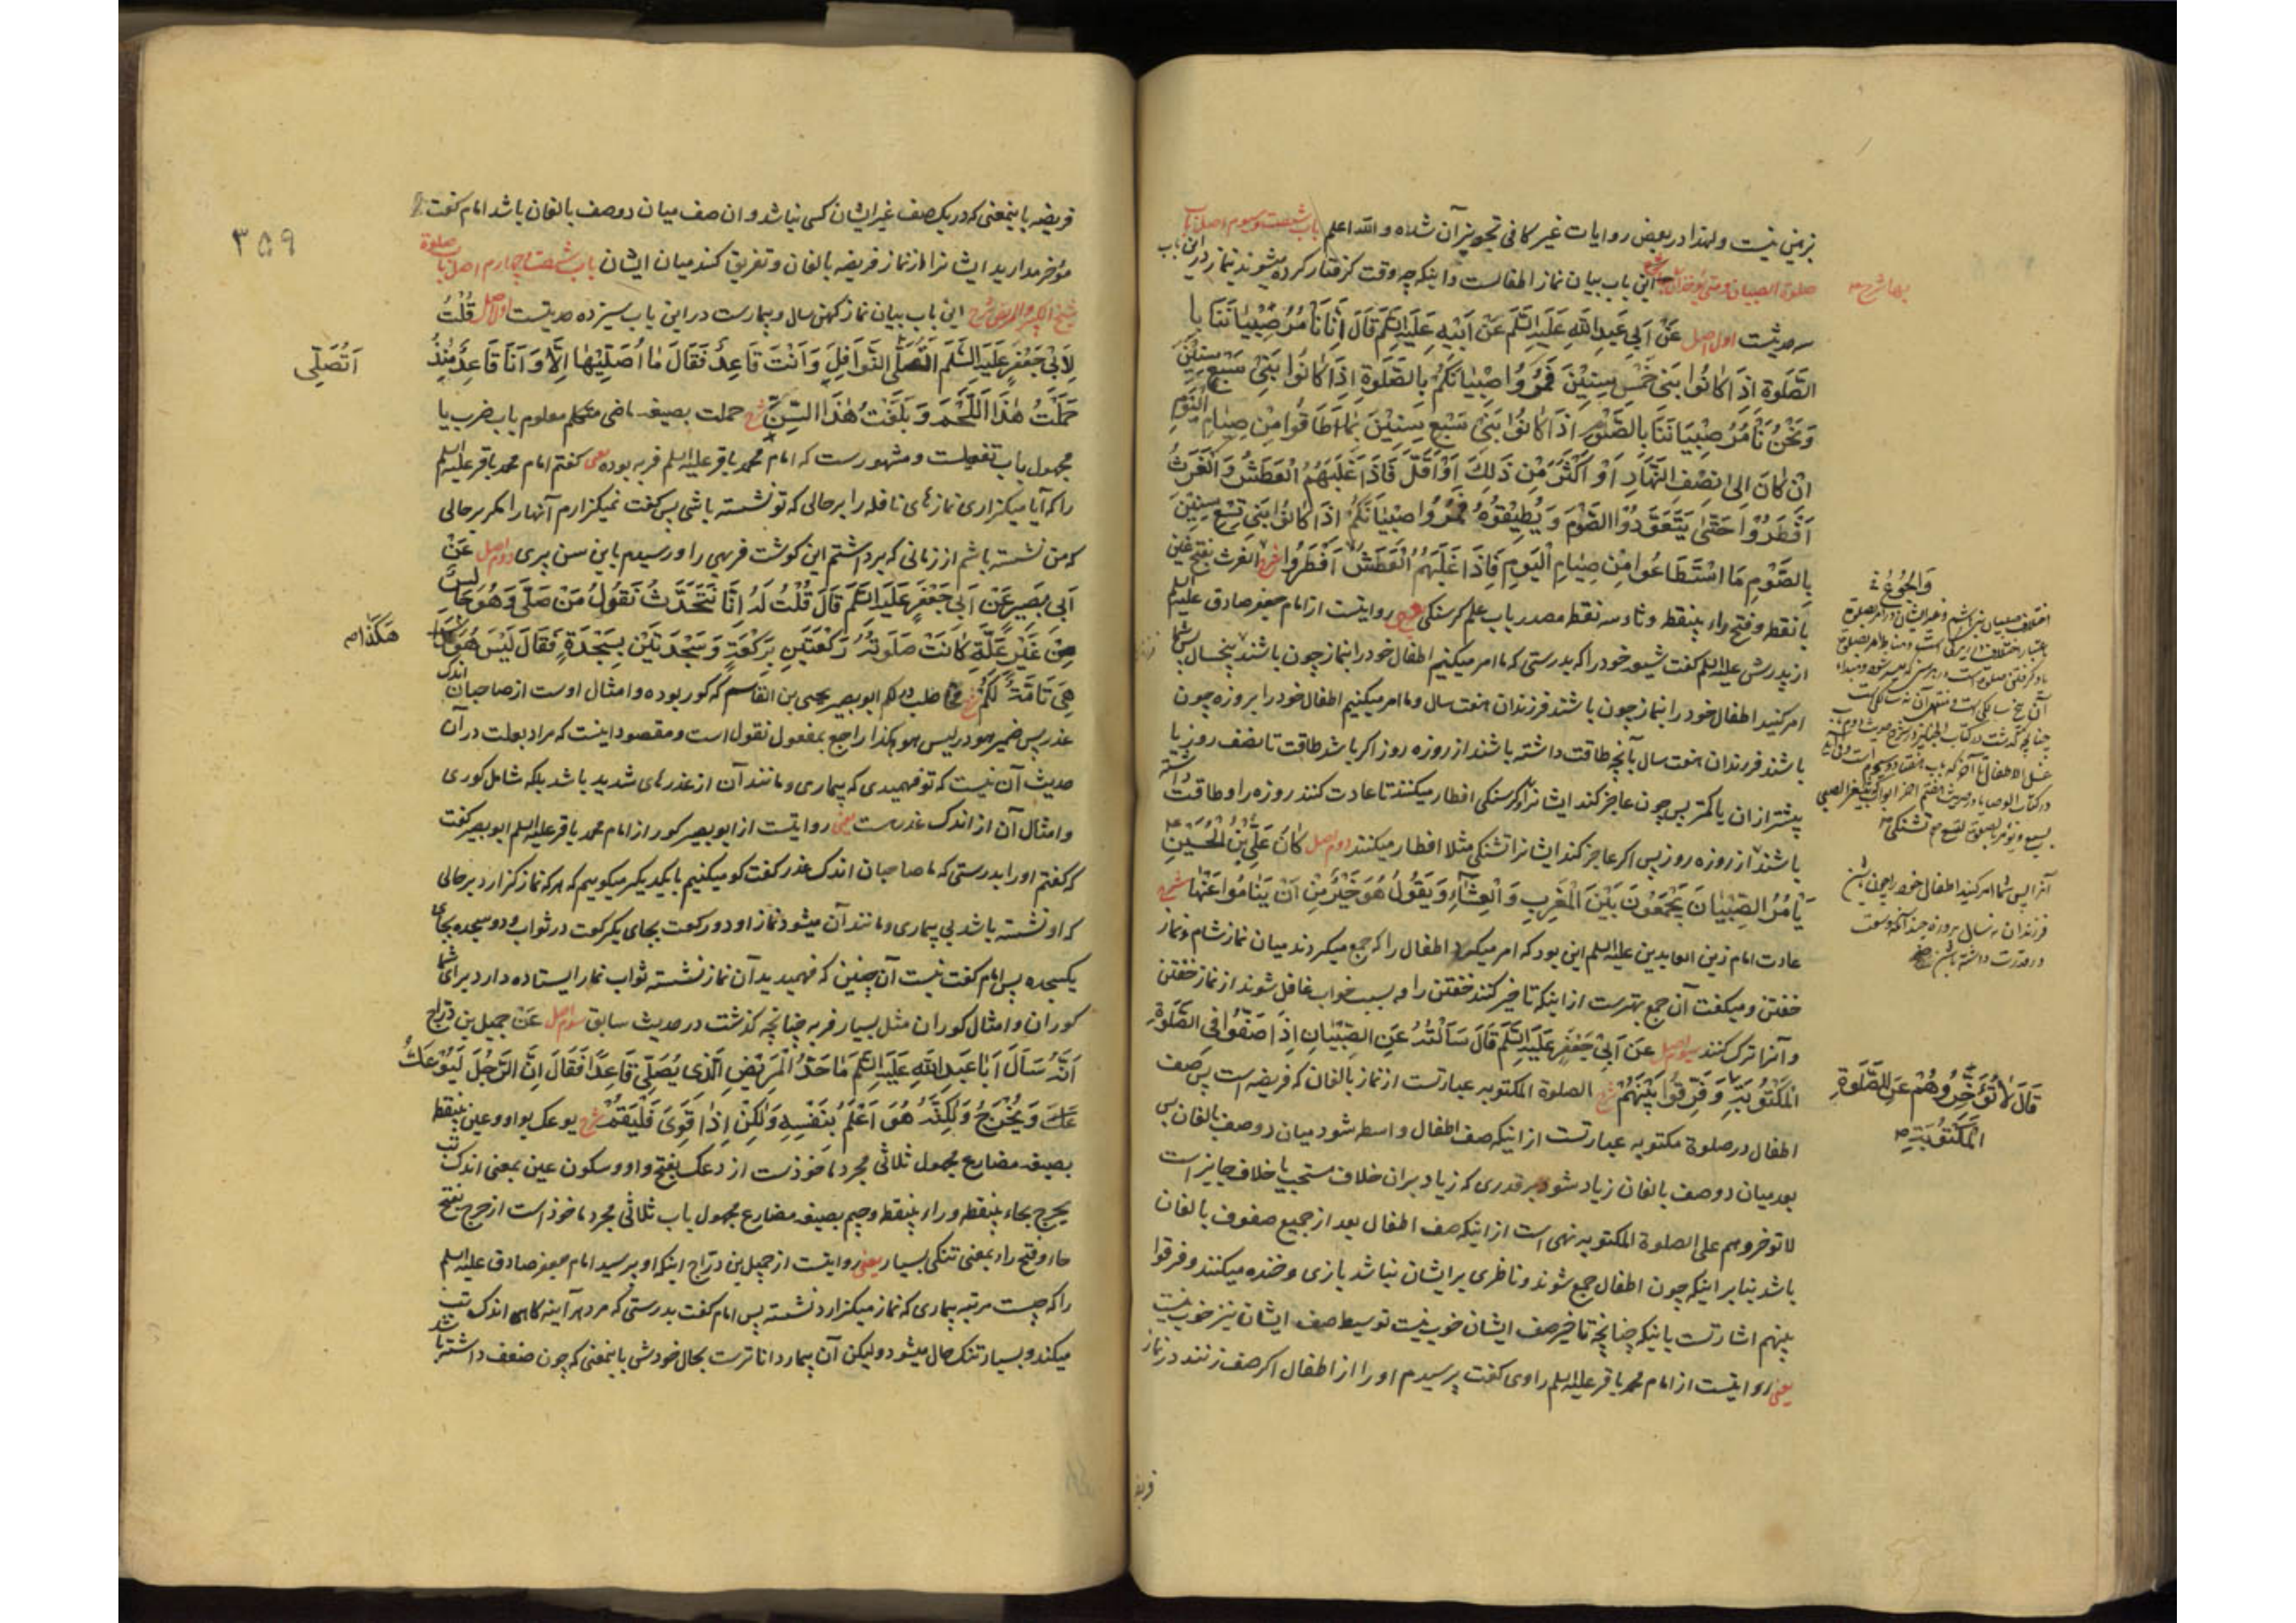 بر زمین نیست ولهذا در بعض روایات غیر کافی تجویز آن شده والله اعلم باب شصت وسوم اصل باب
صلوة الصبیان ومتی یؤخذون بها شرح این باب بیان نماز اطفالست واینکه چه وقت گرفتار کرده میشوند بنماز در این باب
سه حدیثست اول اصل عَنْ اَبِی عَبدِ اللّٰهِ عَلَیهِ السَّلَم عَنْ اَبِیهِ عَلَیهِ السَّلَم قَالَ اِنَّا نَأْمُرُ صِبْیَانَنَا بِا
الصَّلٰوةِ اِذَا کَانُوا بَنِی خَمْسِ سِنِیْنَ فَمُرُوا صِبْیَانَکُمْ بِالصَّلٰوةِ اِذَا کَانُوا بَنِی سَبْعِ سِنِیْنَ
وَنَحْنُ نَأْمُرُ صِبْیَانَنَا بِالصَّوْمِ اِذَا کَانُوا بَنِی سَبْعِ سِنِیْنَ بِمَا اَطَاقُوا مِنْ صِیَامِ الْیَوْمِ
اِنْ کَانَ اِلیٰ نِصْفِ النَّهَارِ اَوْ اَکْثَرَ مِنْ ذٰلِکَ اَوْ اَقَلَّ فَاِذَا غَلَبَهُمُ الْعَطَشُ وَالْغَرَثُ
اَفْطَرُوْا حَتّٰی یَتَعَوَّدُوْا الصَّوْمَ وَیُطِیْقُوْهُ فَمُرُوا صِبْیَانَکُمْ اِذَا کَانُوا بَنِی تِسْعِ سِنِیْنَ
بِالصَّوْمِ مَا اسْتَطَاعُوا مِنْ صِیَامِ الْیَومِ فَاِذَا غَلَبَهُمُ الْعَطَشُ اَفْطَرُوا شرح الغرث بفتح غین
با نقطه وفتح راء بینقطه وثاء سه نقطه مصدر باب علم گرسنگی یعنی روایتست از امام جعفر صادق علیه السلم
از پدرش علیه السلم گفت شیعه خود را که بدرستی که ما امر میکنیم اطفال خود را بنماز چون باشند پنجسال پس شما
امر کنید اطفال خود را بنماز چون باشند فرزندان هفت سال وما امر میکنیم اطفال خود را بروزه چون
باشند فرزندان هفت سال بآنچه طاقت داشته باشند از روزه روز اگر باشد طاقت تا نصف روز یا
بیشتر ازان یا کمتر پس چون عاجز کند ایشانرا گرسنگی افطار میکنند تا عادت کنند روزه را وطاقت داشته
باشند از روزه روز پس اگر عاجز کند ایشانرا تشنگی مثلا افطار میکنند دوم اصل کَانَ عَلِیُّ بْنُ الْحُسَیْنِ
یَأْمُرُ الصِّبْیَانَ یَجْمَعُوْنَ بَیْنَ الْمَغْرِبِ وَالْعِشَاءِ وَیَقُوْلُ هُوَ خَیْرٌ مِنْ اَنْ یَنَامُوا عَنْهَا شرح
عادت امام زین العابدین علیه السلم این بود که امر میکرد اطفال را که جمع میکردند میان نماز شام ونماز
خفتن ومیگفت آن جمع بهترست از اینکه تاخیر کنند خفتن را وبه سبب خواب غافل شوند از نماز خفتن
وآنرا ترک کنند سوم اصل عَن اَبِیْ جَعْفَرٍ عَلَیهِ السَّلَم قَالَ سَاَلْتُهُ عَنِ الصِّبْیَانِ اِذَا صَفُّوا فِی الصَّلٰوةِ
الْمَکْتُوبَةِ وَفَرِّقُوا بَیْنَهُمْ شرح الصلوة المکتوبه عبارتست از نماز بالغان که فریضه است پس صف
اطفال در صلوة مکتوبه عبارتست از اینکه صف اطفال واسطه شود میان دو صف بالغان پس
بعد میان دو صف بالغان زیاد شود بر قدری که زیاد بران خلاف مستحب یا خلاف جایز است
لا توخروهم علی الصلوة المکتوبه نهی است از اینکه صف اطفال بعد از جمیع صفوف بالغان
باشد بنابر اینکه چون اطفال جمع شوند وناظری بر ایشان نباشد بازی وخنده میکنند وفرقوا
بینهم اشارتست باینکه چنانچه تاخیر صف ایشان خوب نیست توسیط صف ایشان نیز خوب نیست
یعنی روایتست از امام محمد باقر علیه السلم راوی گفت پرسیدم او را از اطفال اگر صف زنند در نماز
بها شرح
وَالْجُوْعُ
آنرا پس شما امر کنید اطفال خود را چون باشند
فرزندان نه سال بروزه چندآنکه وسعت
وقدرت داشته باشند
قَالَ لَا تُؤَخِّرُوهُمْ عَنِ الصَّلٰوةِ
الْمَکْتُوبَةِ
فریضه
۳۵۹
فریضه باینمعنی که در یک صف غیر ایشان کسی نباشد وان صف میان دو صف بالغان باشد امام گفت
مؤخر مدارید ایشانرا از نماز فریضه بالغان وتفریق کنند میان ایشان باب شصت وچهارم اصل باب صلوة
شیخ الکبیر والمریض شرح این باب بیان نماز کهن سال وبیمارست در این باب سیزده حدیثست اول اصل قُلْتُ
لِاَبِیْ جَعْفَرٍ عَلَیهِ السَّلَم اَتُصَلِّی النَّوَافِلَ وَاَنْتَ قَاعِدٌ فَقَالَ مَا اُصَلِّیْهَا اِلَّا وَاَنَا قَاعِدٌ مُنْذُ
حَمَلْتُ هٰذَا اللَّحْمَ وَبَلَغْتُ هٰذَا السِّنَّ شرح حملت بصیغه ماضی متکلم معلوم باب ضرب یا
مجهول باب تفعیلست ومشهورست که امام محمد باقر علیه السلم فربه بوده یعنی گفتم امام محمد باقر علیه السلم
را که آیا میگزاری نمازهای نافله را بر حالی که تو نشسته باشی پس گفت نمیگزارم آنها را مگر بر حالی
که من نشسته باشم از زمانی که برداشتم این گوشت فربهی را ورسیدم باین سن پیری دوم اصل عَنْ
اَبِی بَصِیرٍ عَنْ اَبِی جَعْفَرٍ عَلَیهِ السَّلَم قَالَ قُلْتُ لَهُ اِنَّا نَتَحَدَّثُ نَقُولُ مَنْ صَلّٰی وَهُوَ جَالِسٌ
مِنْ غَیْرِ عِلَّةٍ کَانَتْ صَلَوتُهُ رَکْعَتَینِ بِرَکْعَةٍ وَسَجْدَتَیْنِ بِسَجْدَةٍ فَقَالَ لَیْسَ هُوَ
هِیَ تَامَّةٌ لَکُمْ شرح مخاطب در لکم ابو بصیر یحیی بن القاسم که کور بوده وامثال اوست از صاحبان اندک
عذر پس ضمیر هو در لیس هو هکذا راجع بمفعول نقول است ومقصود اینست که مراد بعلت در آن
حدیث آن نیست که تو فهمیدی که بیماری ومانند آن از عذرهای شدید باشد بلکه شامل کوری
وامثال آن از اندک عذرست یعنی روایتست از ابو بصیر کور از امام محمد باقر علیه السلم ابو بصیر گفت
که گفتم او را بدرستی که ما صاحبان اندک عذر گفت کو میکنیم با یکدیگر میگوییم که هر که نماز گزارد بر حالی
که او نشسته باشد بی بیماری ومانند آن میشود نماز او دو رکعت بجای یکرکعت در ثواب ودو سجده بجای
یکسجده پس امام گفت نیست آن چنین که فهمیدید آن نماز نشسته ثواب نماز ایستاده دارد برای شما
کوران وامثال کوران مثل بسیار فربه چنانچه گذشت در حدیث سابق سوم اصل عَنْ جمیل بن دراج
اَنَّهُ سَاَلَ اَبَا عَبدِ اللّٰهِ عَلَیهِ السَّلَم مَا حَدُّ الْمَرِیْضِ الَّذِی یُصَلِّی قَاعِدًا فَقَالَ اِنَّ الرَّجُلَ لَیُوْعَکُ
وَیُحْرَجُ وَلٰکِنَّهُ هُوَ اَعْلَمُ بِنَفْسِهِ وَلٰکِنْ اِذَا قَوِیَ فَلْیَقُمْ شرح یوعک بواو وعین بینقطه
بصیغه مضارع مجهول ثلاثی مجرد ماخوذست از وعک بفتح واو وسکون عین بمعنی اندک تب
یحرج بحاء بینقطه وراء بینقطه وجیم بصیغه مضارع مجهول باب ثلاثی مجرد ماخوذ است از حرج بفتح
حاء وفتح راء بمعنی تنگی بسیار یعنی روایتست از جمیل بن دراج اینکه او پرسید امام جعفر صادق علیه السلم
را که چیست مرتبه بیماری که نماز میگزارد نشسته پس امام گفت بدرستی که مرد هر آینه گاهی اندک تب
میکند وبسیار تنک حال میشود ولیکن آن بیمار داناترست بحال خودش باینمعنی که چون ضعف داشته باشد
اَتُصَلِّی
هَکَذَا